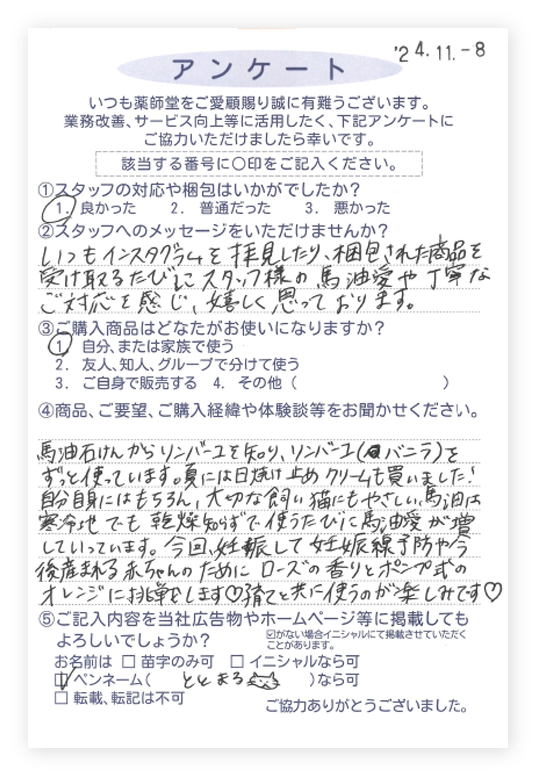 '24.11.-8
アンケート
いつも薬師堂をご愛顧賜り誠に有難うございます。
業務改善、サービス向上等に活用したく、下記アンケートに
ご協力いただけましたら幸いです。
該当する番号に〇印をご記入ください。
①スタッフの対応や梱包はいかがでしたか？
1. 良かった　2. 普通だった　3. 悪かった
②スタッフへのメッセージをいただけませんか？
いつもインスタグラムを拝見したり、梱包された商品を
受け取るたびにスタッフ様の馬油愛や丁寧な
ご対応を感じ、嬉しく思っております。
③ご購入商品はどなたがお使いになりますか？
1 自分、または家族で使う
2. 友人、知人、グループで分けて使う
3. ご自身で販売する　4. その他（　　　　　　　）
④商品、ご要望、ご購入経緯や体験談等をお聞かせください。
馬油石けんからソンバーユを知り、ソンバーユ(バニラ)を
ずっと使っています。夏には日焼け止めクリームも買いました！
自分自身にはもちろん、大切な飼い猫にもやさしい、馬油は
寒冷地でも乾燥知らずで使うたびに馬油愛が増
していっています。今回、妊娠して妊娠線予防や今
後産まれる赤ちゃんのためにローズの香りとポンプ式の
オレンジに挑戦をします♡猫と共に使うのが楽しみです♡
⑤ご記入内容を当社広告物やホームページ等に掲載しても
よろしいでしょうか？
☑がない場合イニシャルにて掲載させていただく
ことがあります。
お名前は □ 苗字のみ可　□ イニシャルなら可
☑ ペンネーム（ ととまる ）なら可
□ 転載、転記は不可
ご協力ありがとうございました。